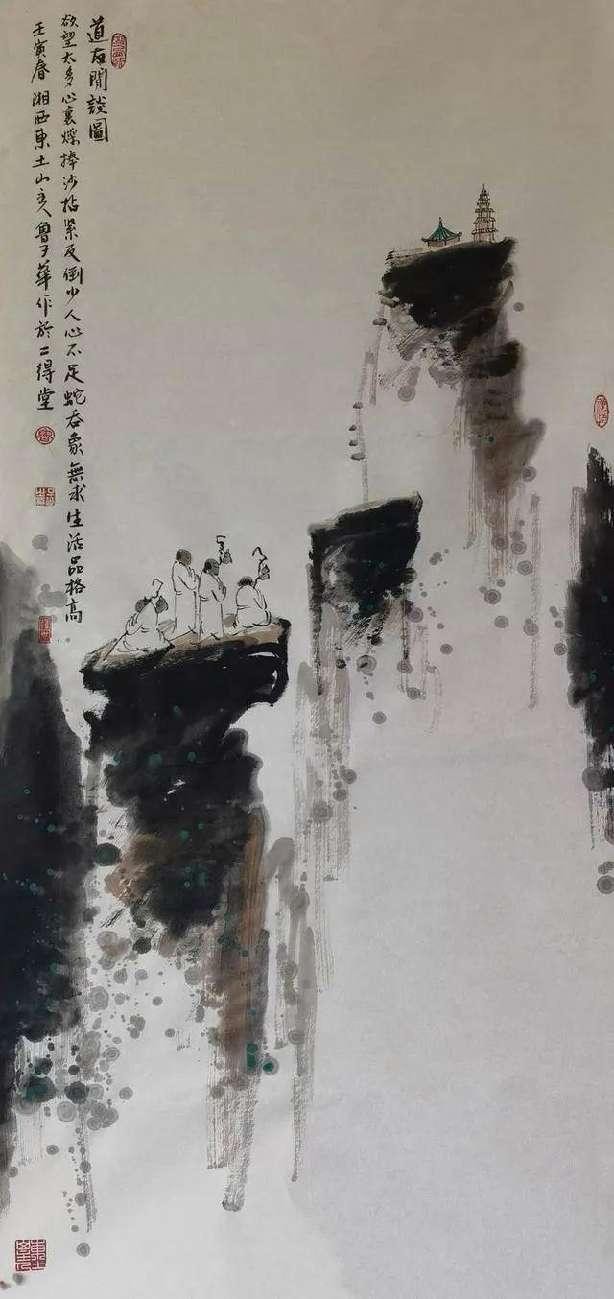 道友閒談圖
欲望太多心裏燥捧沙抬紧反倒少人心不足蛇吞象無求生活品格高
壬寅春湘西東土山主人魯子華作於二得堂